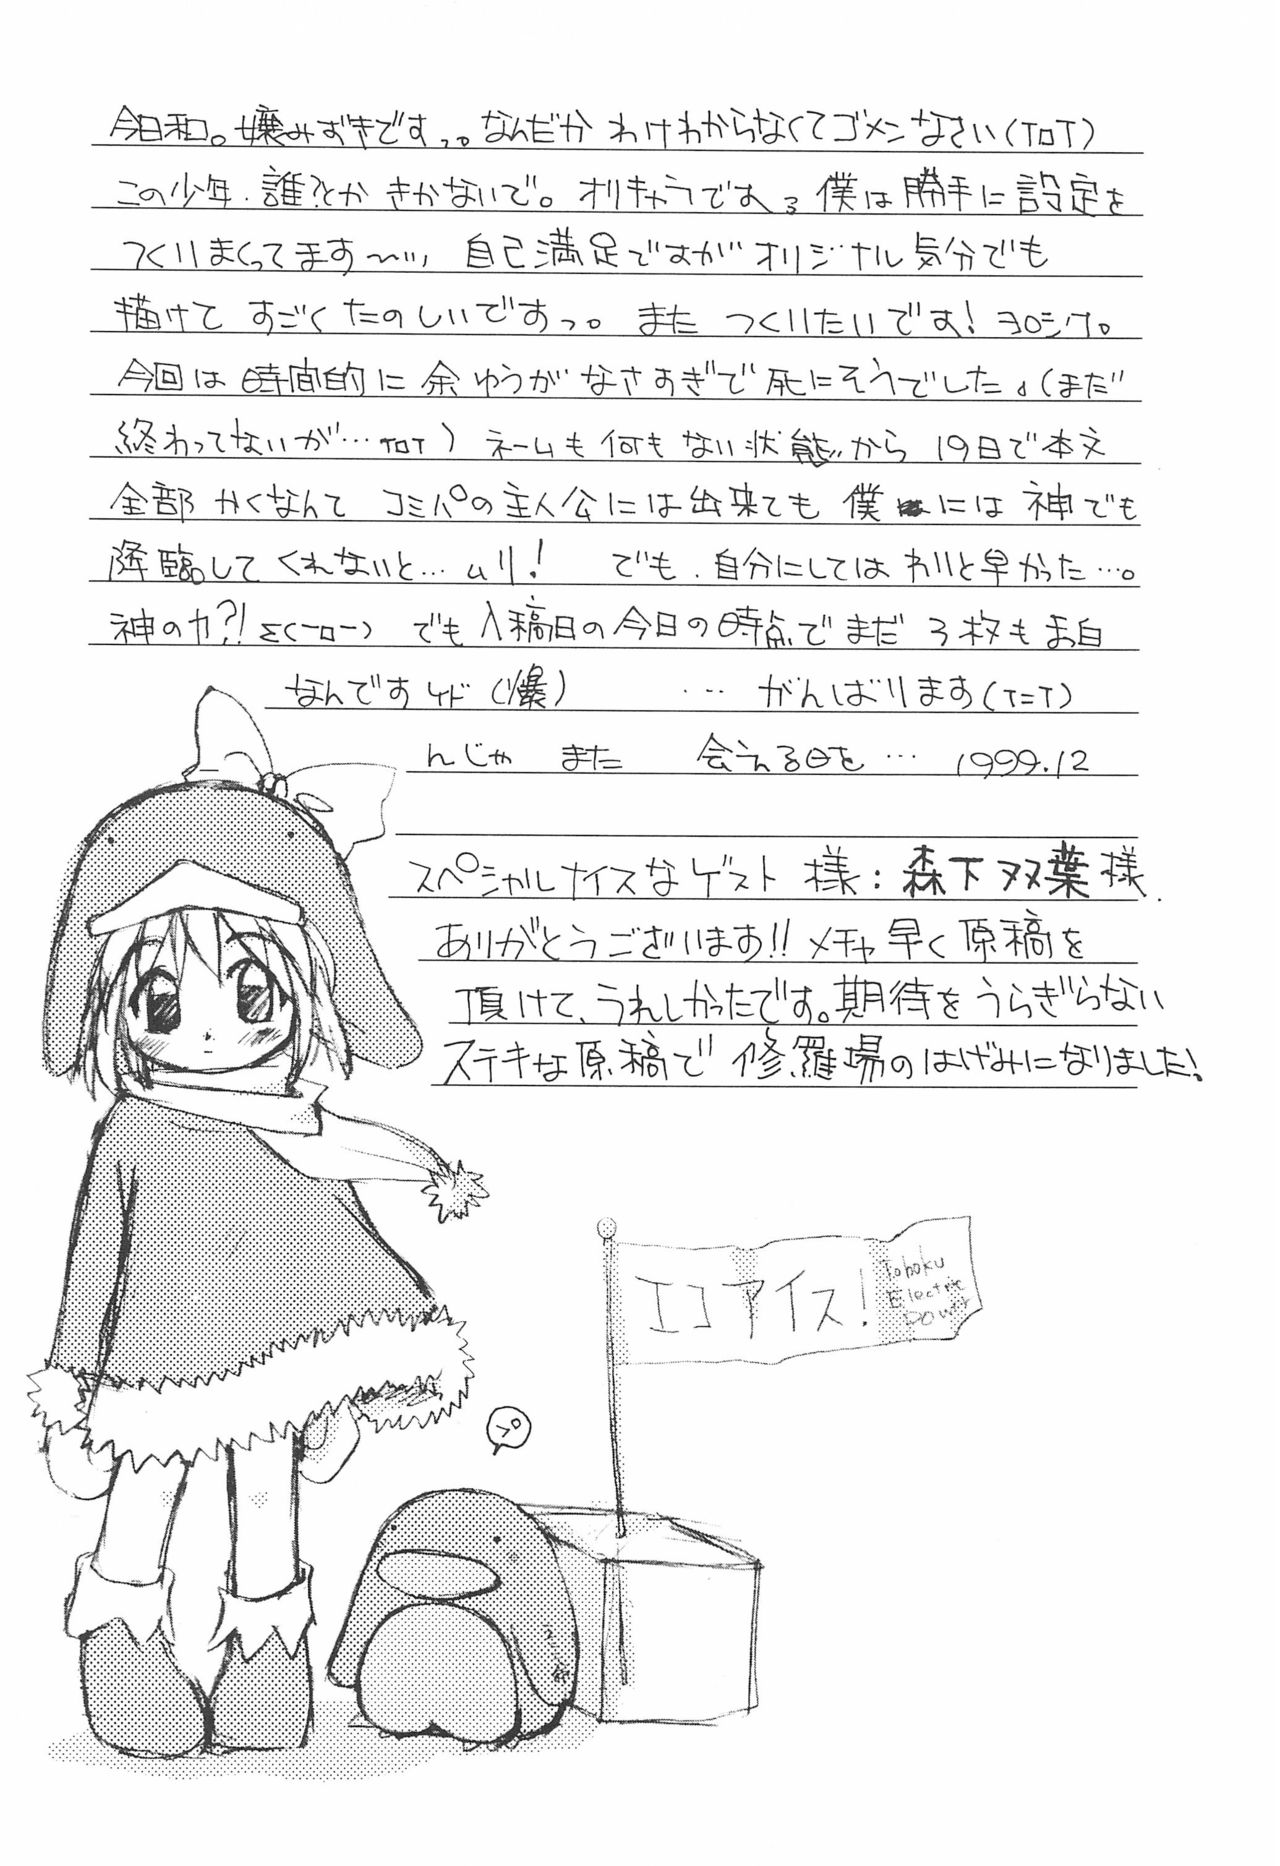 今日和。嬢みずきですっ。なんだか わけわからなくてゴメンなさい(ToT)
この少年.誰?とか きかないで。オリキャラですよぅ 僕は勝手に設定を
つくりまくってます〜ッッ 自己満足ですがオリジナル気分でも
描けて すごくたのしいですっ。また つくりたいです!ヨロシク。
今回は時間的に余ゆうがなさすぎで死にそうでした。(まだ
終わってないが…ToT) ネームも何もない状態から 19日で本文
全部 かくなんて コミパの主人公には出来ても 僕には 神でも
降臨してくれないと… ムリ! でも.自分にしては わりと早かった…。
神の力?! Σ(ーロー) でも入稿日の今日の時点でまだ 3枚もま白
なんですケド(爆) … がんばります(T=T)
んじゃ また 会える日を… 1999.12
スペシャルナイスなゲスト 様:森下双葉様.
ありがとうございます!! メチャ早く原稿を
頂けて、うれしかったです。期待をうらぎらない
ステキな原稿で 修羅場のはげみになりました!
エコアイス!
Tohoku
Electric
Power